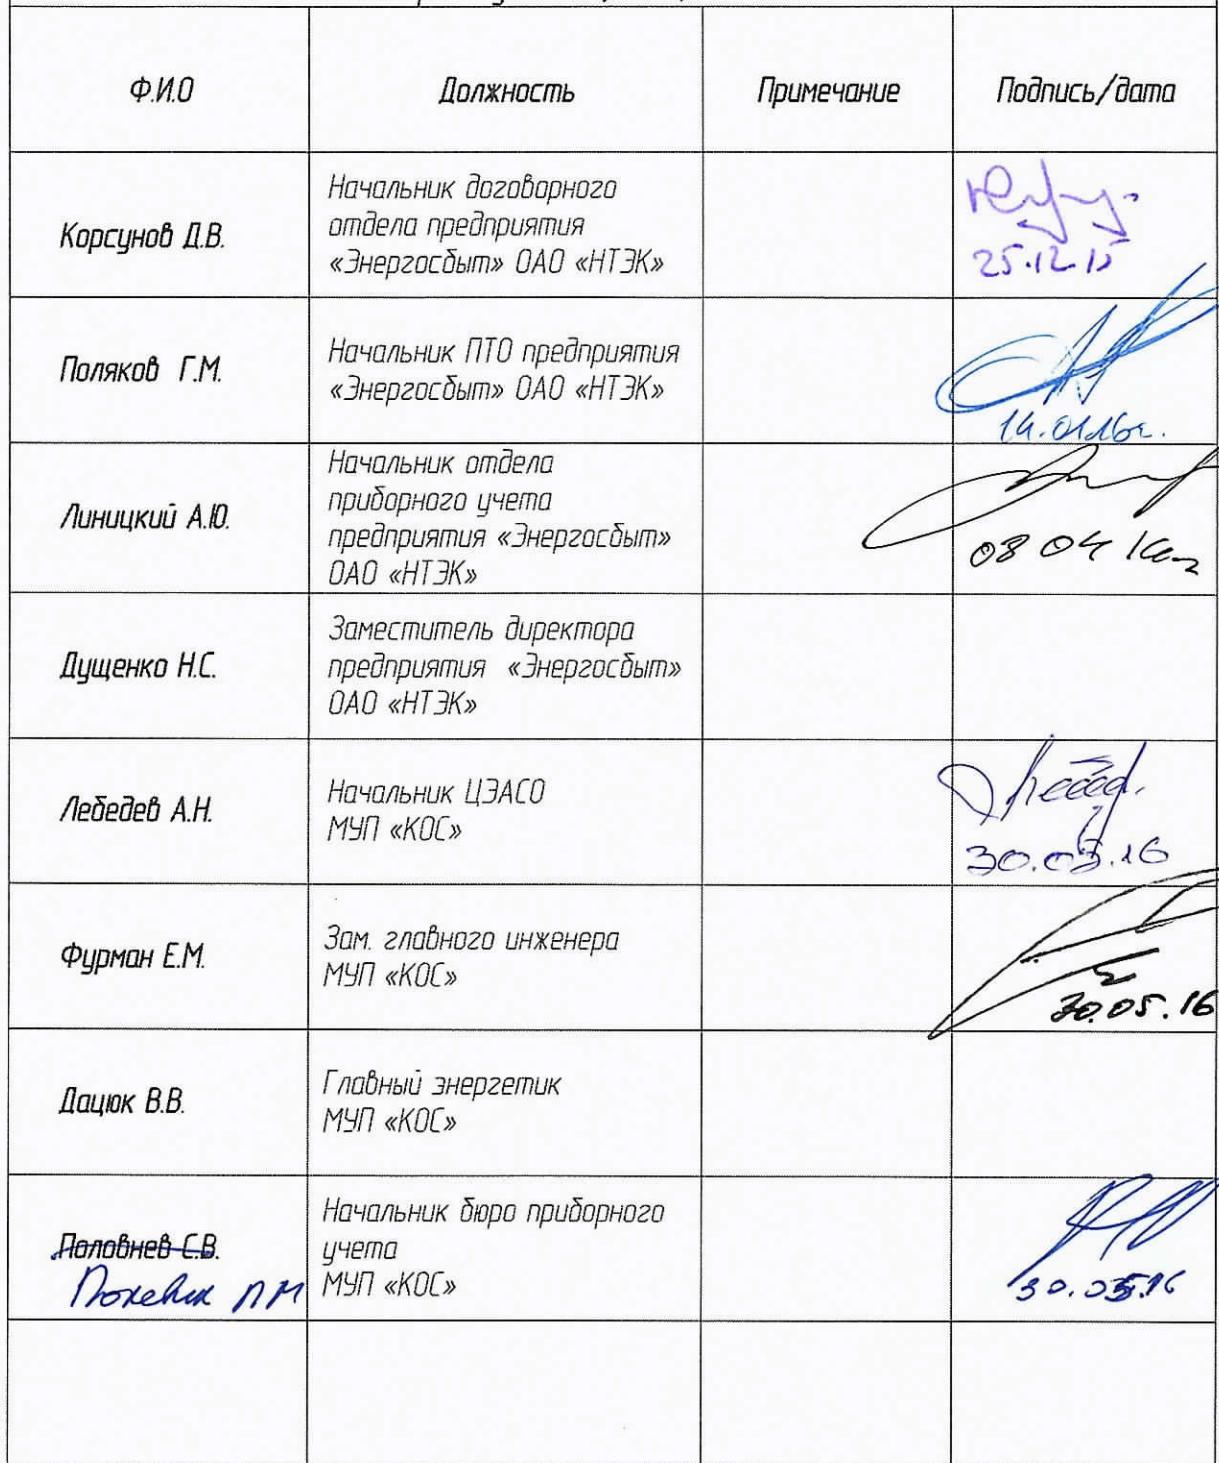 Ф.И.О Должность Примечание Подпись/дата
Корсунов Д.В.
Начальник договорного
отдела предприятия
«Энергосбыт» ОАО «НТЭК»
25.12.15
Поляков Г.М.
Начальник ПТО предприятия
«Энергосбыт» ОАО «НТЭК»
14.01.16г.
Линицкий А.Ю.
Начальник отдела
приборного учета
предприятия «Энергосбыт»
ОАО «НТЭК»
08 04 16г
Дущенко Н.С.
Заместитель директора
предприятия «Энергосбыт»
ОАО «НТЭК»
Лебедев А.Н.
Начальник ЦЭАСО
МУП «КОС»
30.05.16
Фурман Е.М.
Зам. главного инженера
МУП «КОС»
30.05.16
Дацюк В.В.
Главный энергетик
МУП «КОС»
Половнев С.В.
Начальник бюро приборного
учета
МУП «КОС»
30.05.16